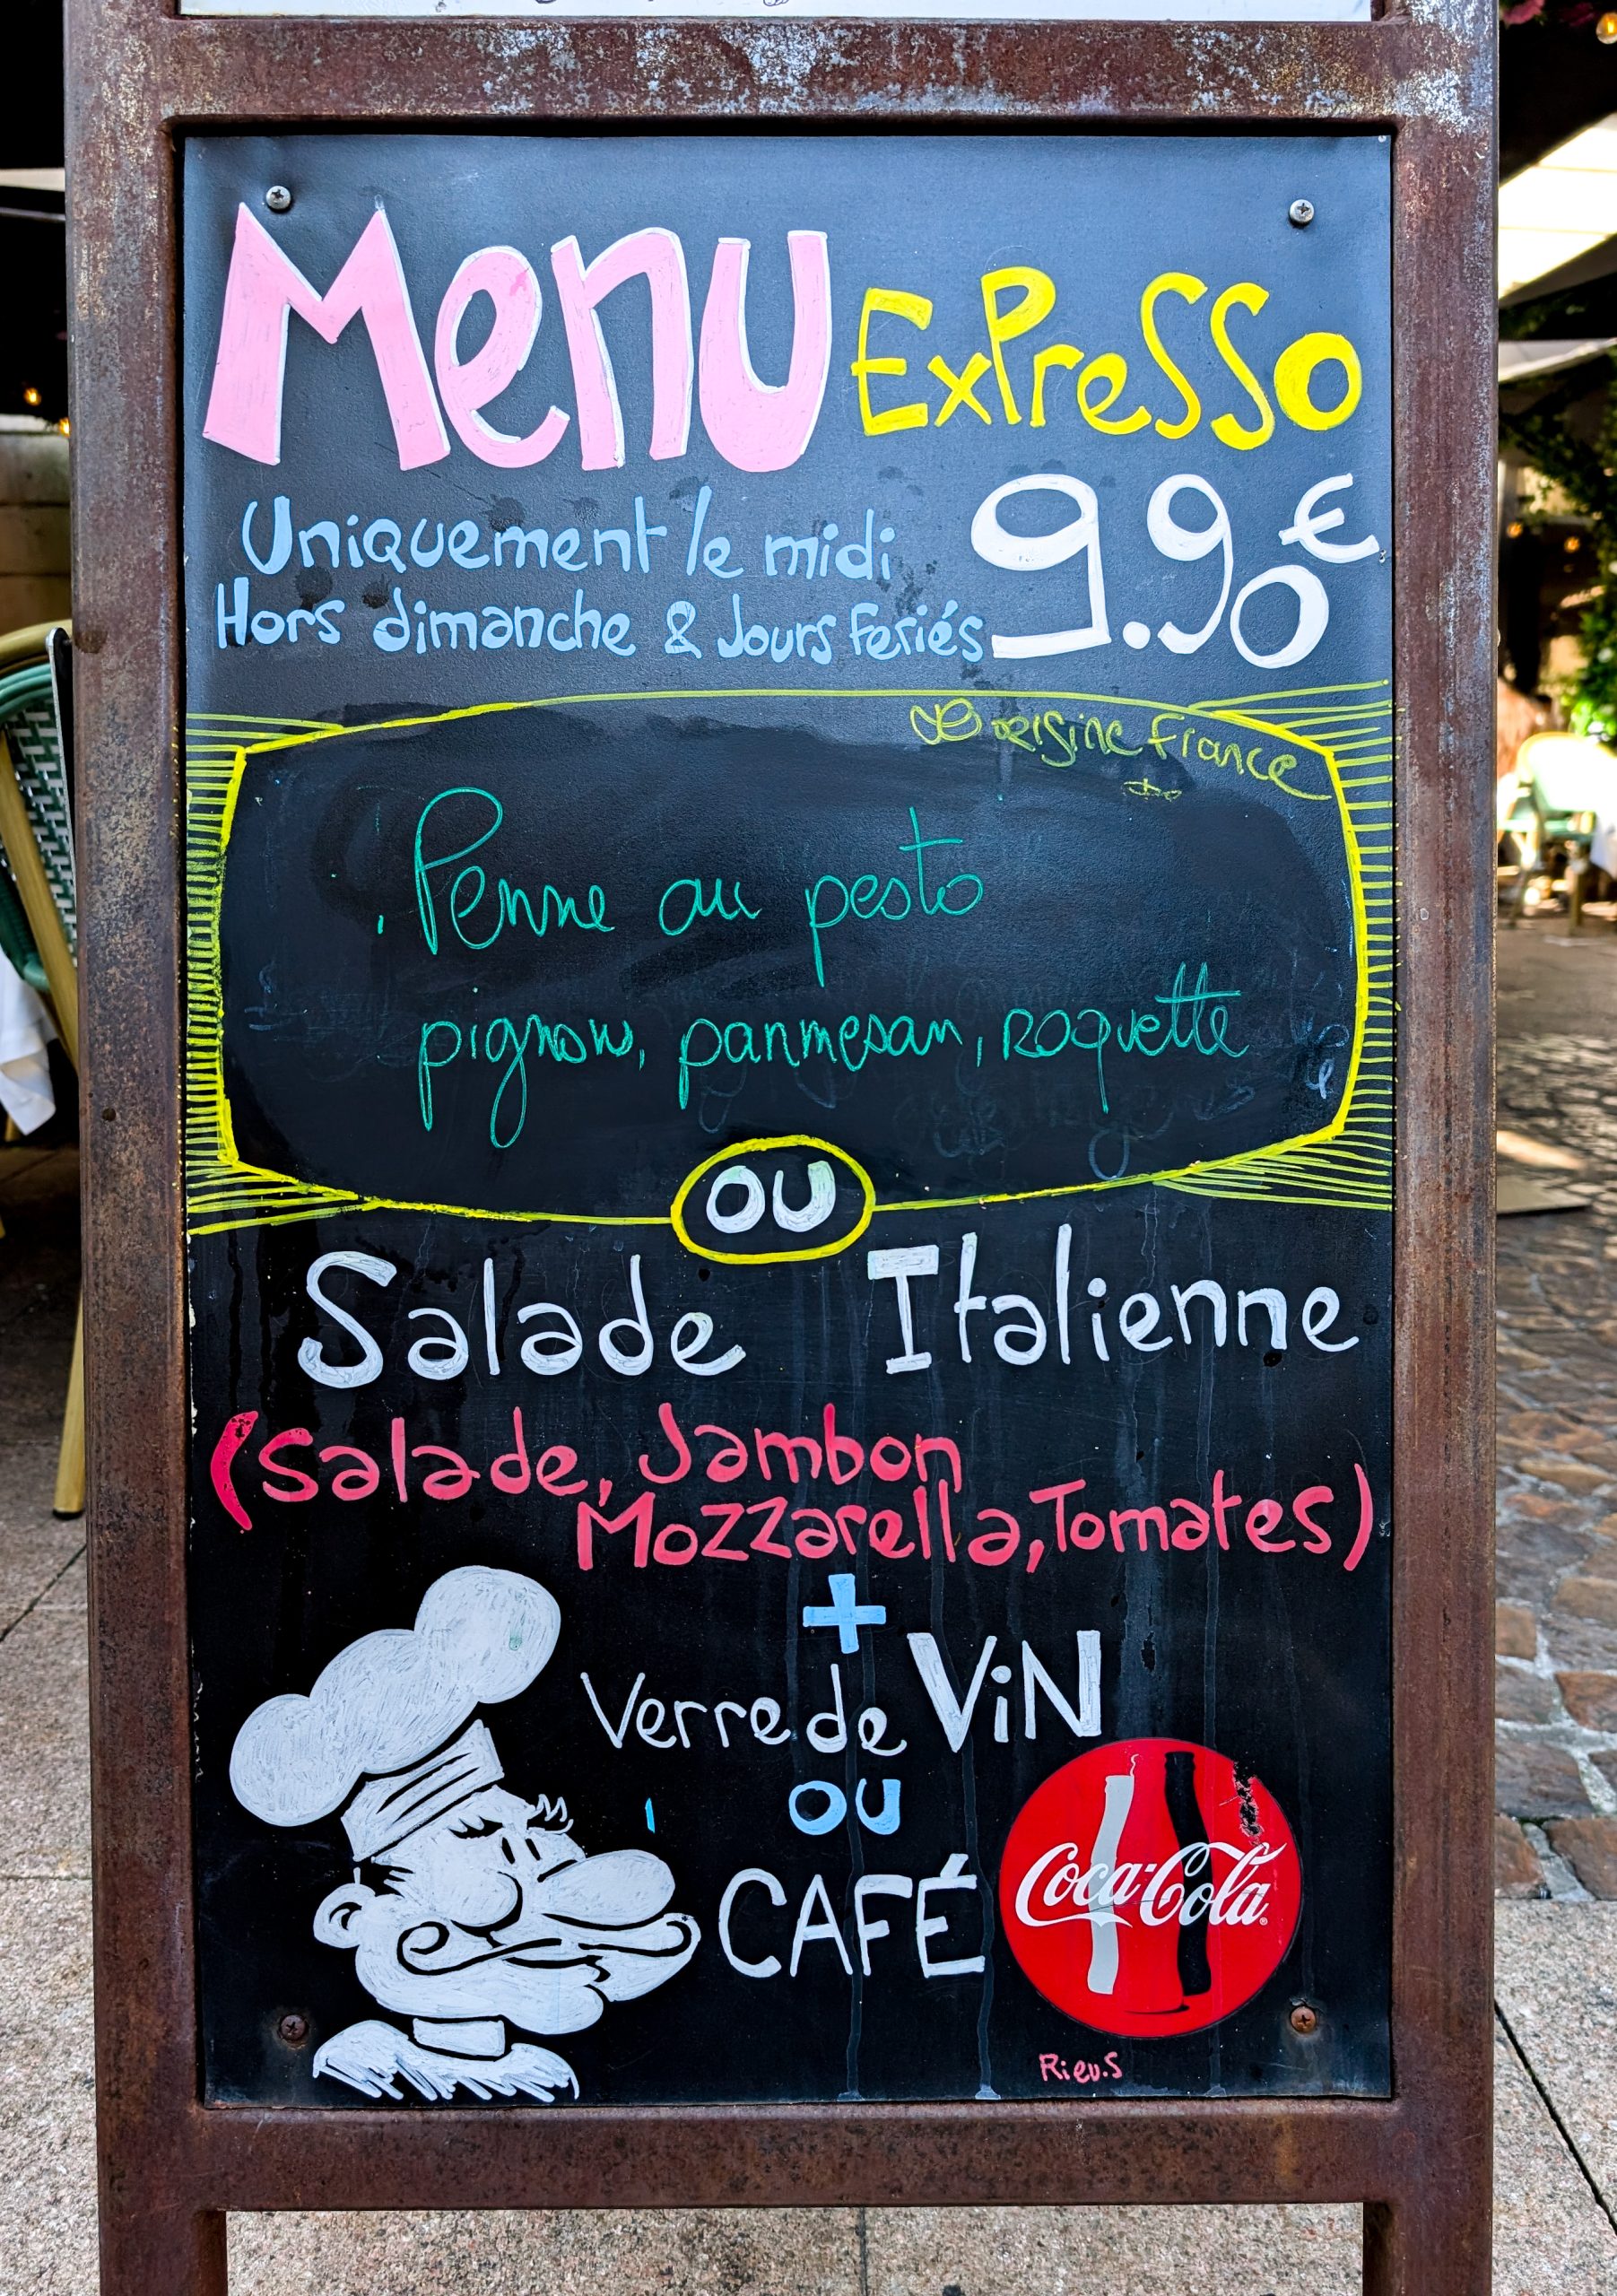 Menu ExPresso
Uniquement le midi
Hors dimanche & Jours Feriés
9.90€
origine France
Penne au pesto
pignons, parmesan, roquette
OU
Salade Italienne
(Salade, Jambon
Mozzarella, Tomates)
+
Verre de ViN
OU
CAFÉ
Coca-Cola
Rieu.S